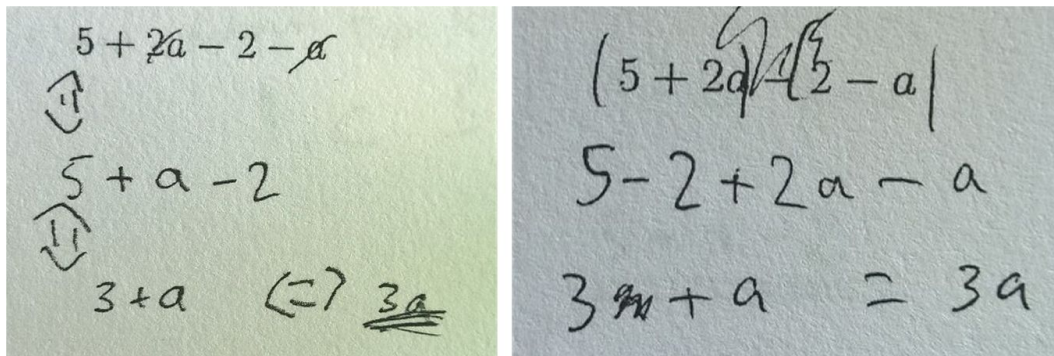 5 + 2a − 2 − a
⇕
5 + a − 2
⇕
3 + a ⇔ 3a
(5 + 2a) − (2 − a)
5 − 2 + 2a − a
3 + a = 3a